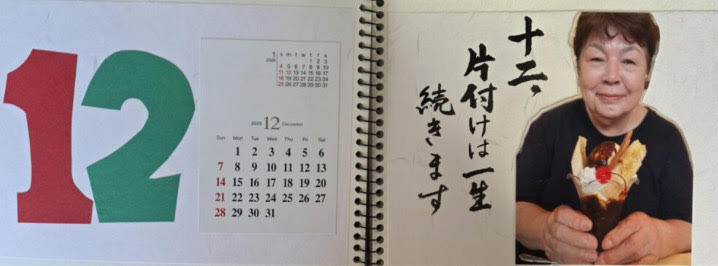 12
1
2026
S M T W T F S
1 2 3
4 5 6 7 8 9 10
11 12 13 14 15 16 17
18 19 20 21 22 23 24
25 26 27 28 29 30 31
2025 12 December
Sun Mon Tue Wed Thu Fri Sat
1 2 3 4 5 6
7 8 9 10 11 12 13
14 15 16 17 18 19 20
21 22 23 24 25 26 27
28 29 30 31
十二、
片付けは一生
続きます